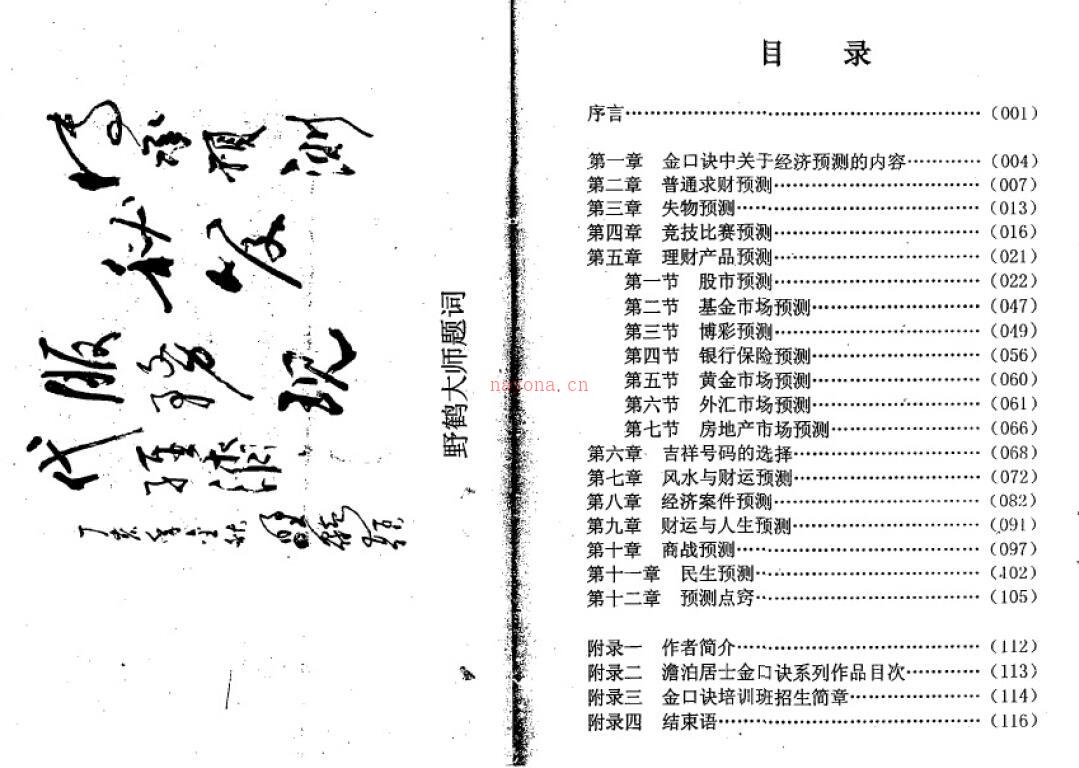 野鹤大师题词
nayona.cn
目 录
序言……………………………………………(001)
第一章 金口诀中关于经济预测的内容…………(004)
第二章 普通求财预测……………………………(007)
第三章 失物预测…………………………………(013)
第四章 竞技比赛预测……………………………(016)
第五章 理财产品预测……………………………(021)
第一节 股市预测…………………………(022)
第二节 基金市场预测……………………(047)
第三节 博彩预测…………………………(049)
第四节 银行保险预测……………………(056)
第五节 黄金市场预测……………………(060)
第六节 外汇市场预测……………………(061)
第七节 房地产市场预测…………………(066)
第六章 吉祥号码的选择…………………………(068)
第七章 风水与财运预测…………………………(072)
第八章 经济案件预测……………………………(082)
第九章 财运与人生预测…………………………(091)
第十章 商战预测…………………………………(097)
第十一章 民生预测………………………………(102)
第十二章 预测点窍………………………………(105)
附录一 作者简介…………………………………(112)
附录二 澹泊居士金口诀系列作品目次…………(113)
附录三 金口诀培训班招生简章…………………(114)
附录四 结束语……………………………………(116)